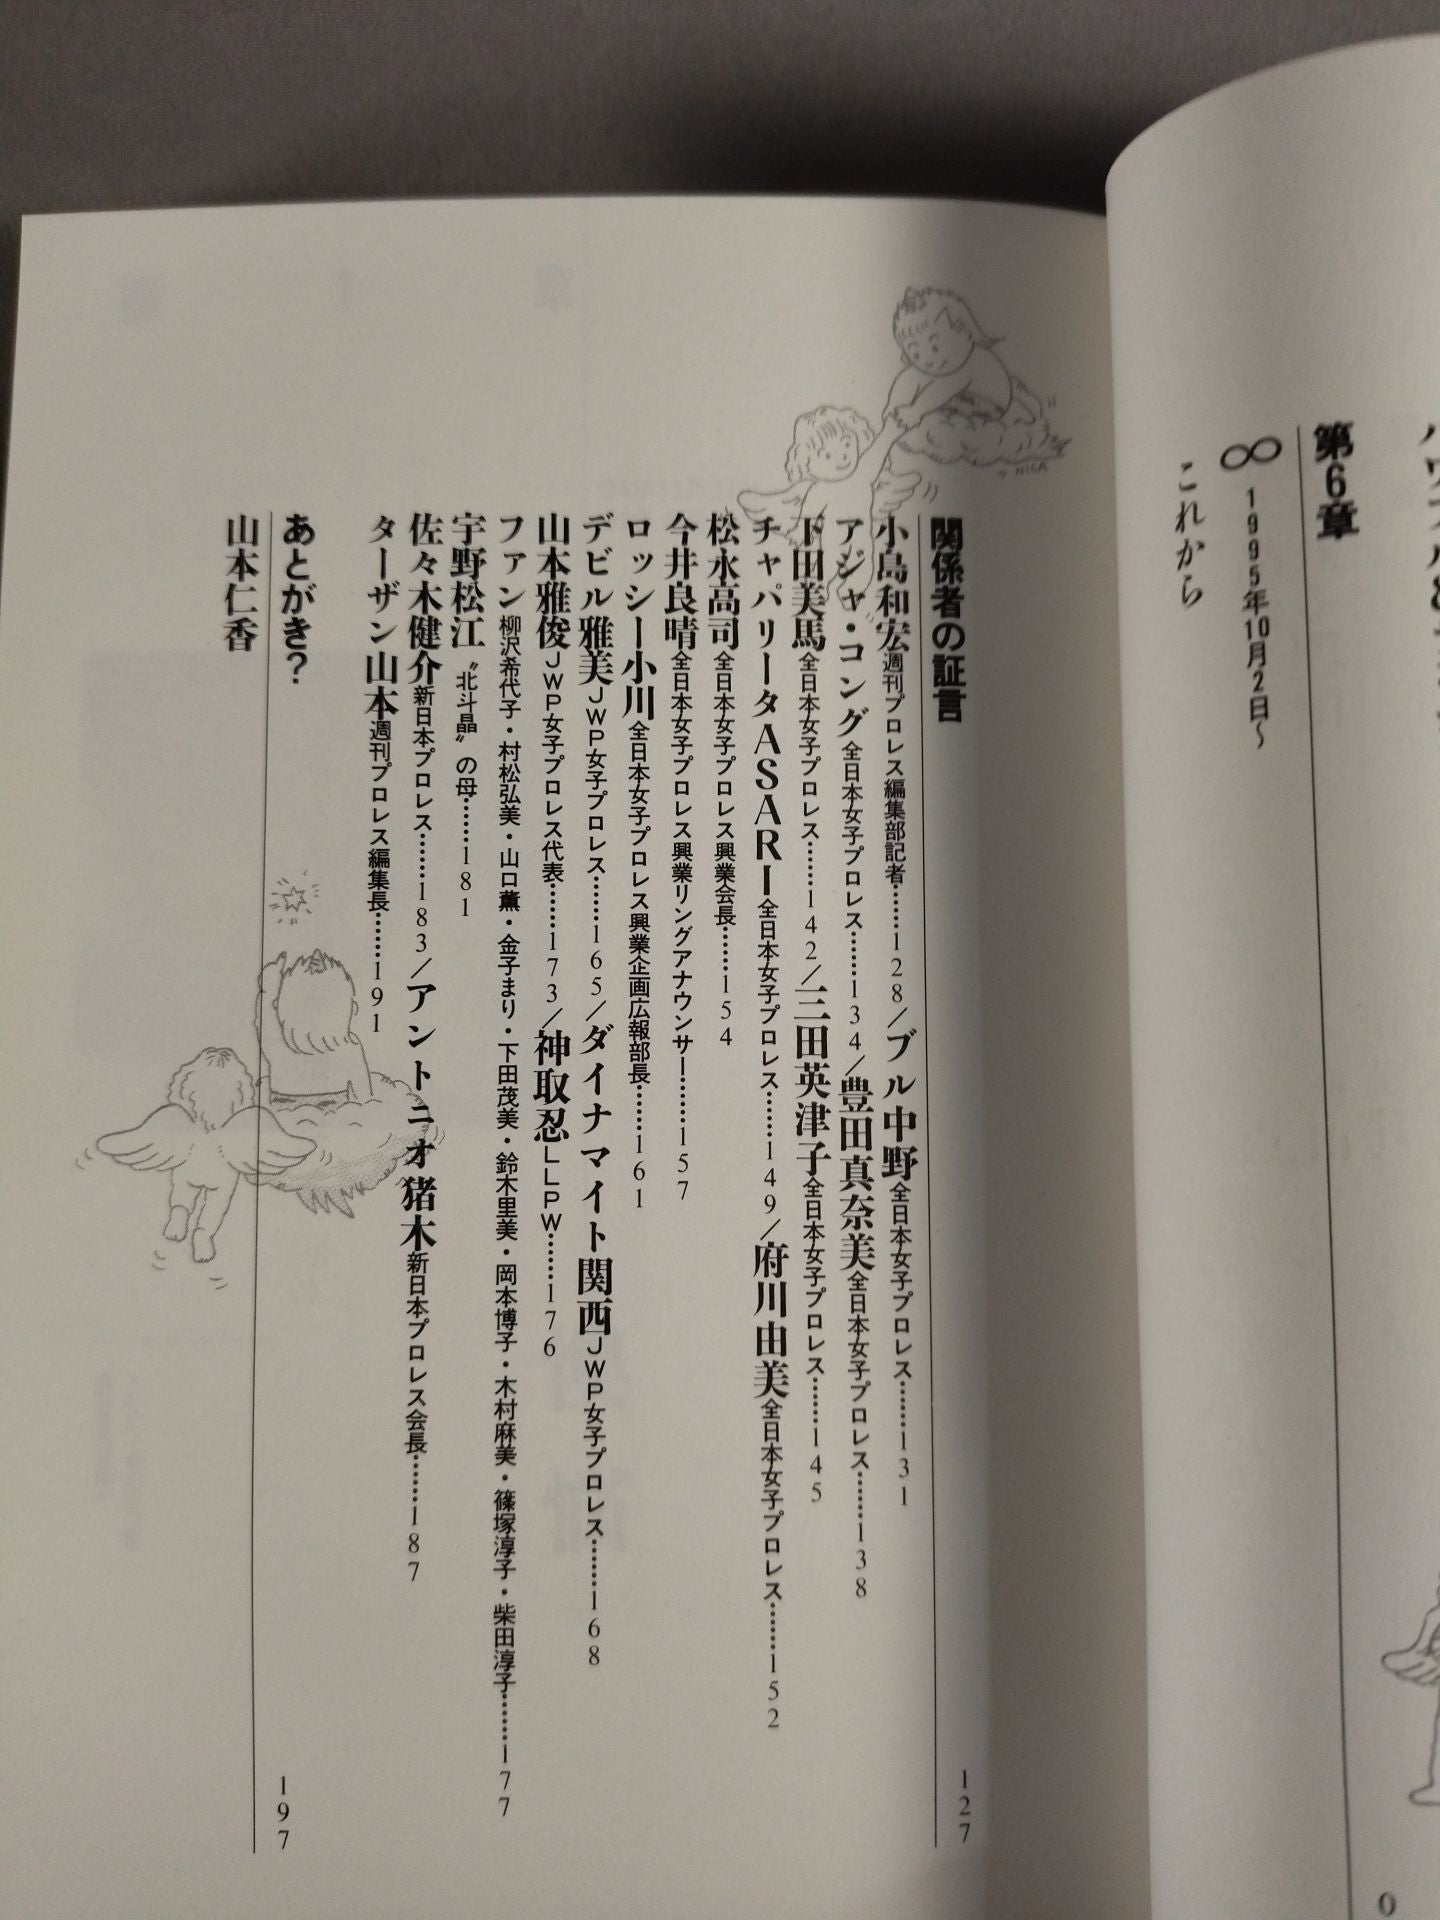 第6章
∞ 1995年10月2日〜
これから
関係者の証言 127
小島和宏 週刊プロレス編集部記者……128／ブル中野 全日本女子プロレス……131
アジャ・コング 全日本女子プロレス……134／豊田真奈美 全日本女子プロレス……138
下田美馬 全日本女子プロレス……142／三田英津子 全日本女子プロレス……145
チャパリータASARI 全日本女子プロレス……149／府川由美 全日本女子プロレス……152
松永高司 全日本女子プロレス興業会長……154
今井良晴 全日本女子プロレス興業リングアナウンサー……157
ロッシー小川 全日本女子プロレス興業企画広報部長……161
デビル雅美 JWP女子プロレス……165／ダイナマイト関西 JWP女子プロレス……168
山本雅俊 JWP女子プロレス代表……173／神取忍 LLPW……176
ファン 柳沢希代子・村松弘美・山口薫・金子まり・下田茂美・鈴木里美・岡本博子・木村麻美・篠塚淳子・柴田淳子……177
宇野松江 〝北斗晶〟の母……181
佐々木健介 新日本プロレス……183／アントニオ猪木 新日本プロレス会長……187
ターザン山本 週刊プロレス編集長……191
あとがき? 197
山本仁香
NIGA